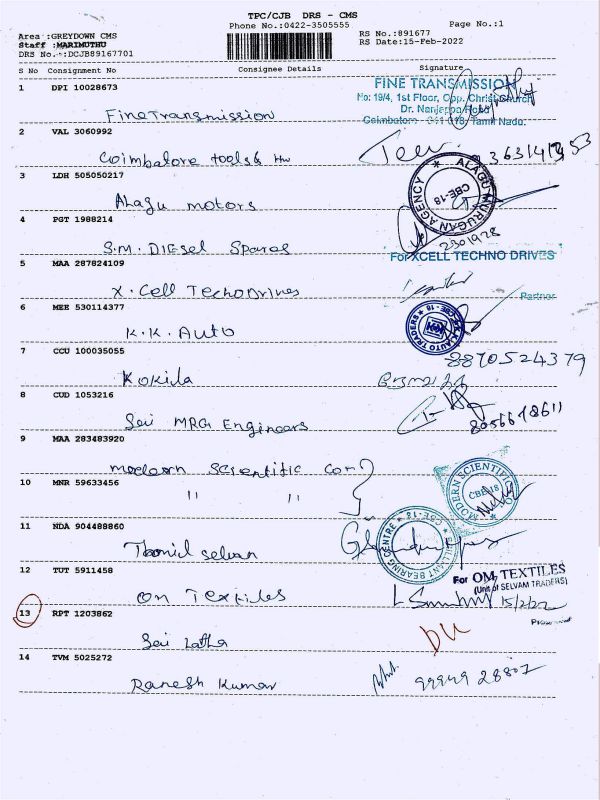 TPC/CJB DRS - CMS
Phone No.:0422-3505555
Page No.:1
Area :GREYDOWN CMS
Staff :MARIMUTHU
DRS No.-:DCJB89167701
RS No.:891677
RS Date:15-Feb-2022
S No Consignment No Consignee Details Signature
1 DPI 10028673
Fine Transmission
FINE TRANSMISSION
No: 19/4, 1st Floor, Opp. Christ Church
Dr. Nanjappa Road
Coimbatore - 641 018, Tamil Nadu.
2 VAL 3060992
Coimbatore tools & Hw
3 LDH 505050217
Alagu motors
ALAGU MURUGAN AGENCY
CBE-18
4 PGT 1988214
S.M. Diesel Spares
5 MAA 287824109
X. Cell TechoDrives
For XCELL TECHNO DRIVES
Partner
6 MEE 530114377
K.K. Auto
K.K.AUTO TRADERS
CBE-18
7 CCU 100035055
Kokila
8870524379
8 CUD 1053216
Sai MRG Engineers
8056678611
9 MAA 283483920
modern Scientific Com
10 MNR 59633456
" "
MODERN SCIENTIFIC
CBE-18
11 NDA 904488860
Tamil selvan
BRILLIANT BEARING CENTRE
CBE-18
12 TUT 5911458
Om Textiles
For OM TEXTILES
(Unit of SELVAM TRADERS)
15/2/22
13 RPT 1203862
Sai Latha
14 TVM 5025272
Ramesh Kumar
99949 28807